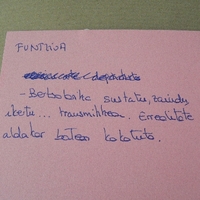 FUNTZIOA
- Bertsolaritza sustatu, zaindu,
ikertu... transmititzea. Errealitate
aldakor batean kokatuta.